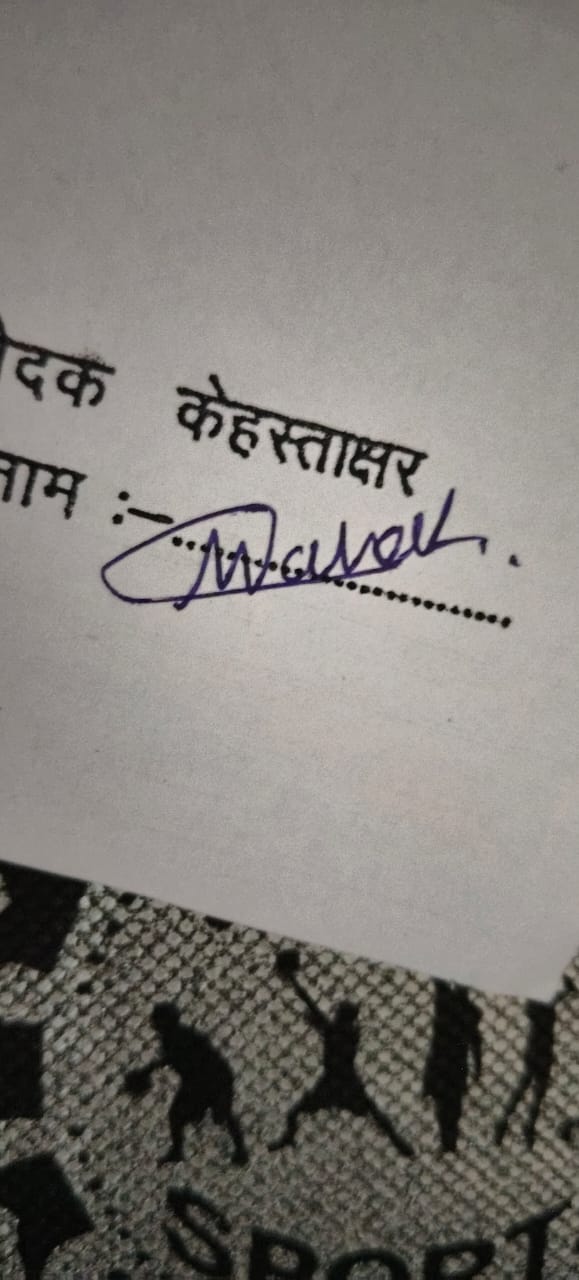 ेदक केहस्ताक्षर
नाम :-
SPORT